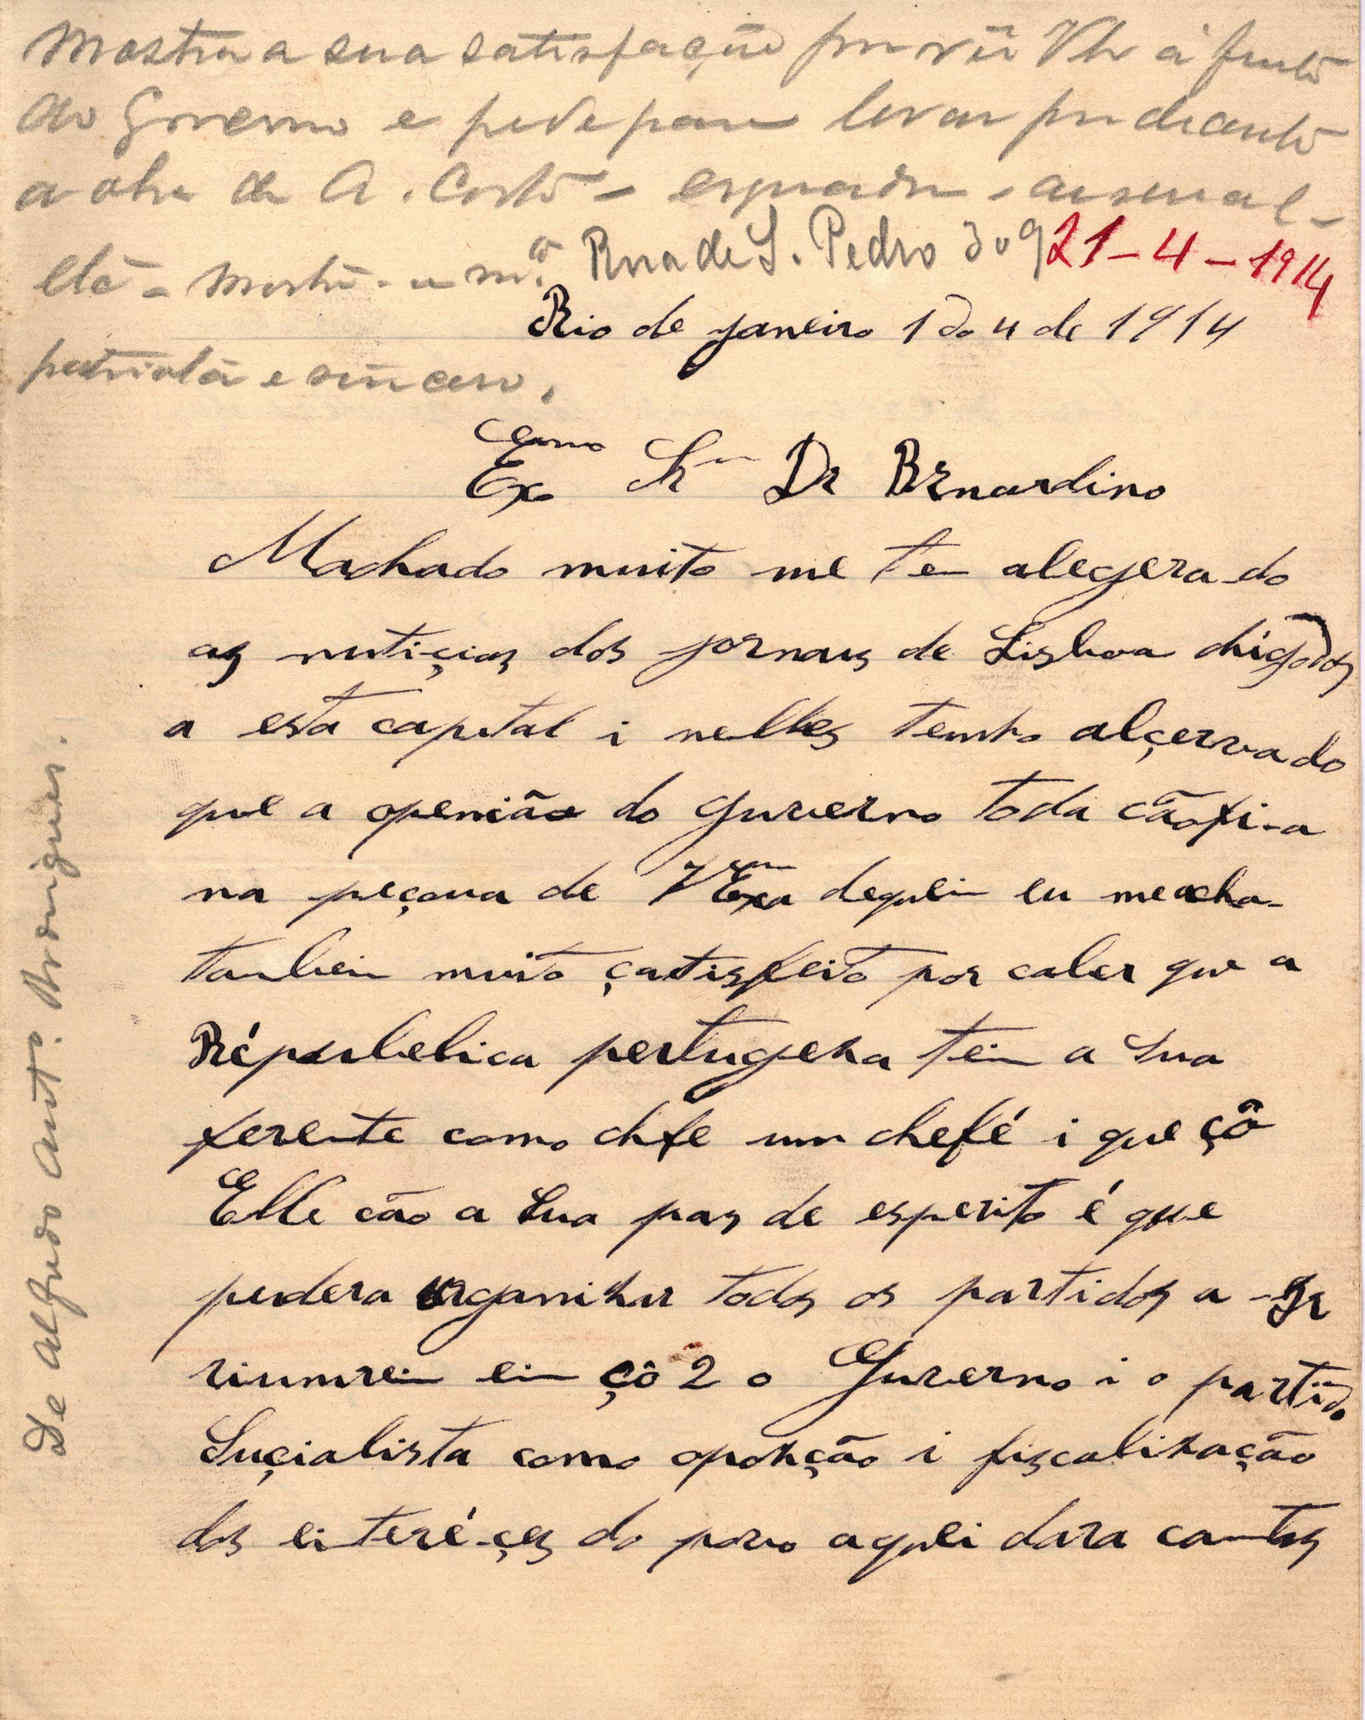 Mostra a sua satisfação por vêr VEx á frente
do Governo e pede para levar por deante
a obra de A. Costa – esquadra, arsenal –
etc – Mostra-se m.to
Rua de S. Pedro 309
21-4-1914
Rio de janeiro 1 do 4 de 1914
patriota e sincero.
Exmo Snr Dr Bernardino
Machado muito me te alegera-do
as nutiçias dos jornaus de Lisboa chigados
a esta capital i nelles tenho alçervado
que a openião do guverno toda cãofi-a
na peçoua de VExa dequei eu me acha-
tanbein muito çatisfeito por caber que a
Répubelica pertugeza tein a Sua
ferente como chfe um chefé i que çô
Elle cão a Sua pas de esperito é que
pudera organizar todos os partidos a -gr
riumrein ein çô 2 o Guverno i o partido
Suçialista como oposição i fizcalização
dos einteré-çes do povo aquei dara cantos
De Alfredo Ant.o Rodrigues.